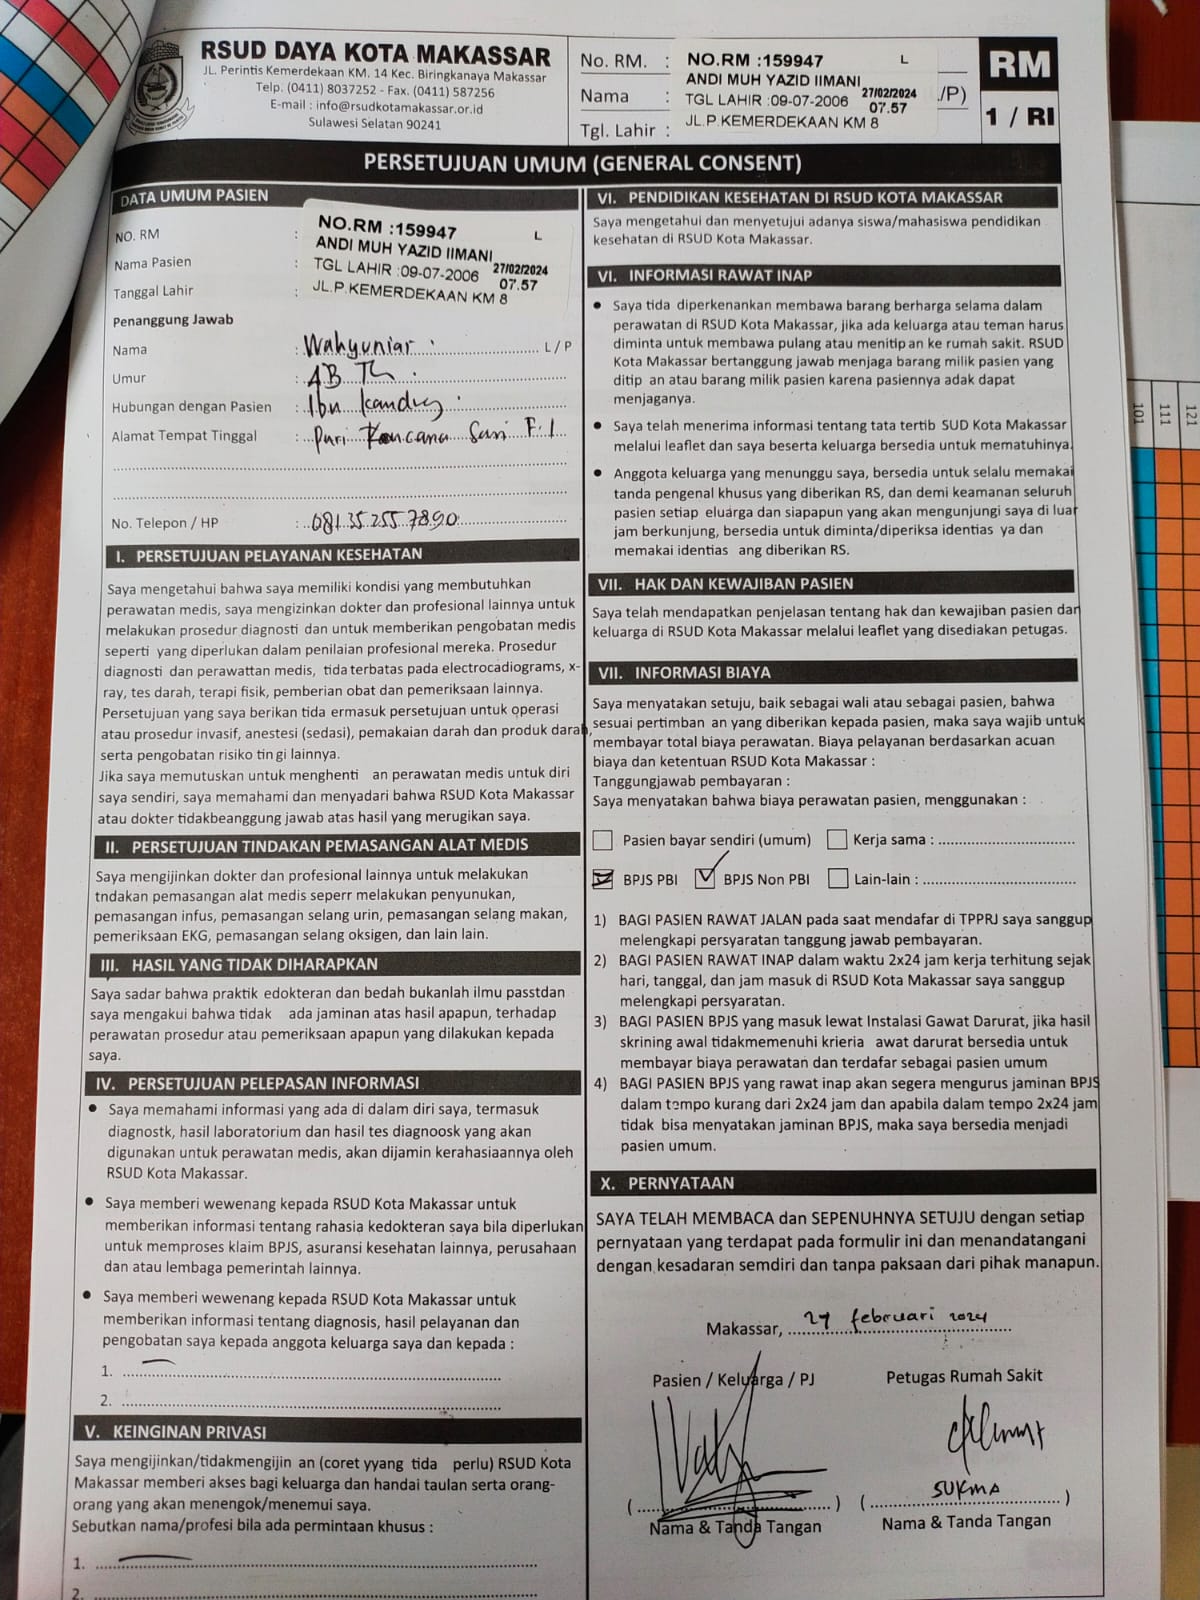 RSUD DAYA KOTA MAKASSAR
JL. Perintis Kemerdekaan KM. 14 Kec. Biringkanaya Makassar
Telp. (0411) 8037252 - Fax. (0411) 587256
E-mail : info@rsudkotamakassar.or.id
Sulawesi Selatan 90241
No. RM. :
Nama :
Tgl. Lahir :
NO.RM :159947 L
ANDI MUH YAZID IIMANI
TGL LAHIR :09-07-2006 27/02/2024
07.57
JL.P.KEMERDEKAAN KM 8
/P)
RM
1 / RI
PERSETUJUAN UMUM (GENERAL CONSENT)
DATA UMUM PASIEN
NO. RM :
Nama Pasien :
Tanggal Lahir :
NO.RM :159947 L
ANDI MUH YAZID IIMANI
TGL LAHIR :09-07-2006 27/02/2024
07.57
JL.P.KEMERDEKAAN KM 8
Penanggung Jawab
Nama : Wahyuniar L / P
Umur : 4B Th
Hubungan dengan Pasien : Ibu kandug
Alamat Tempat Tinggal : Puri Kencana Sari F.1
No. Telepon / HP : 081352557890
I. PERSETUJUAN PELAYANAN KESEHATAN
Saya mengetahui bahwa saya memiliki kondisi yang membutuhkan
perawatan medis, saya mengizinkan dokter dan profesional lainnya untuk
melakukan prosedur diagnosti dan untuk memberikan pengobatan medis
seperti yang diperlukan dalam penilaian profesional mereka. Prosedur
diagnosti dan perawattan medis, tida terbatas pada electrocadiograms, x-
ray, tes darah, terapi fisik, pemberian obat dan pemeriksaan lainnya.
Persetujuan yang saya berikan tida ermasuk persetujuan untuk operasi
atau prosedur invasif, anestesi (sedasi), pemakaian darah dan produk darah,
serta pengobatan risiko tin gi lainnya.
Jika saya memutuskan untuk menghenti an perawatan medis untuk diri
saya sendiri, saya memahami dan menyadari bahwa RSUD Kota Makassar
atau dokter tidakbeanggung jawab atas hasil yang merugikan saya.
II. PERSETUJUAN TINDAKAN PEMASANGAN ALAT MEDIS
Saya mengijinkan dokter dan profesional lainnya untuk melakukan
tndakan pemasangan alat medis seperr melakukan penyunukan,
pemasangan infus, pemasangan selang urin, pemasangan selang makan,
pemeriksaan EKG, pemasangan selang oksigen, dan lain lain.
III. HASIL YANG TIDAK DIHARAPKAN
Saya sadar bahwa praktik edokteran dan bedah bukanlah ilmu passtdan
saya mengakui bahwa tidak ada jaminan atas hasil apapun, terhadap
perawatan prosedur atau pemeriksaan apapun yang dilakukan kepada
saya.
IV. PERSETUJUAN PELEPASAN INFORMASI
• Saya memahami informasi yang ada di dalam diri saya, termasuk
diagnostk, hasil laboratorium dan hasil tes diagnoosk yang akan
digunakan untuk perawatan medis, akan dijamin kerahasiaannya oleh
RSUD Kota Makassar.
• Saya memberi wewenang kepada RSUD Kota Makassar untuk
memberikan informasi tentang rahasia kedokteran saya bila diperlukan
untuk memproses klaim BPJS, asuransi kesehatan lainnya, perusahaan
dan atau lembaga pemerintah lainnya.
• Saya memberi wewenang kepada RSUD Kota Makassar untuk
memberikan informasi tentang diagnosis, hasil pelayanan dan
pengobatan saya kepada anggota keluarga saya dan kepada :
1.
2.
V. KEINGINAN PRIVASI
Saya mengijinkan/tidakmengijin an (coret yyang tida perlu) RSUD Kota
Makassar memberi akses bagi keluarga dan handai taulan serta orang-
orang yang akan menengok/menemui saya.
Sebutkan nama/profesi bila ada permintaan khusus :
1.
2.
VI. PENDIDIKAN KESEHATAN DI RSUD KOTA MAKASSAR
Saya mengetahui dan menyetujui adanya siswa/mahasiswa pendidikan
kesehatan di RSUD Kota Makassar.
VI. INFORMASI RAWAT INAP
• Saya tida diperkenankan membawa barang berharga selama dalam
perawatan di RSUD Kota Makassar, jika ada keluarga atau teman harus
diminta untuk membawa pulang atau menitip an ke rumah sakit. RSUD
Kota Makassar bertanggung jawab menjaga barang milik pasien yang
ditip an atau barang milik pasien karena pasiennya adak dapat
menjaganya.
• Saya telah menerima informasi tentang tata tertib SUD Kota Makassar
melalui leaflet dan saya beserta keluarga bersedia untuk mematuhinya.
• Anggota keluarga yang menunggu saya, bersedia untuk selalu memakai
tanda pengenal khusus yang diberikan RS, dan demi keamanan seluruh
pasien setiap eluárga dan siapapun yang akan mengunjungi saya di luar
jam berkunjung, bersedia untuk diminta/diperiksa identias ya dan
memakai identias ang diberikan RS.
VII. HAK DAN KEWAJIBAN PASIEN
Saya telah mendapatkan penjelasan tentang hak dan kewajiban pasien dan
keluarga di RSUD Kota Makassar melalui leaflet yang disediakan petugas.
VII. INFORMASI BIAYA
Saya menyatakan setuju, baik sebagai wali atau sebagai pasien, bahwa
sesuai pertimban an yang diberikan kepada pasien, maka saya wajib untuk
membayar total biaya perawatan. Biaya pelayanan berdasarkan acuan
biaya dan ketentuan RSUD Kota Makassar :
Tanggungjawab pembayaran :
Saya menyatakan bahwa biaya perawatan pasien, menggunakan :
Pasien bayar sendiri (umum) Kerja sama :
BPJS PBI BPJS Non PBI Lain-lain :
1) BAGI PASIEN RAWAT JALAN pada saat mendafar di TPPRJ saya sanggup
melengkapi persyaratan tanggung jawab pembayaran.
2) BAGI PASIEN RAWAT INAP dalam waktu 2x24 jam kerja terhitung sejak
hari, tanggal, dan jam masuk di RSUD Kota Makassar saya sanggup
melengkapi persyaratan.
3) BAGI PASIEN BPJS yang masuk lewat Instalasi Gawat Darurat, jika hasil
skrining awal tidakmemenuhi krieria awat darurat bersedia untuk
membayar biaya perawatan dan terdafar sebagai pasien umum
4) BAGI PASIEN BPJS yang rawat inap akan segera mengurus jaminan BPJS
dalam tempo kurang dari 2x24 jam dan apabila dalam tempo 2x24 jam
tidak bisa menyatakan jaminan BPJS, maka saya bersedia menjadi
pasien umum.
X. PERNYATAAN
SAYA TELAH MEMBACA dan SEPENUHNYA SETUJU dengan setiap
pernyataan yang terdapat pada formulir ini dan menandatangani
dengan kesadaran semdiri dan tanpa paksaan dari pihak manapun.
Makassar, 27 februari 2024
Pasien / Keluarga / PJ Petugas Rumah Sakit
( ) ( SUKMA )
Nama & Tanda Tangan Nama & Tanda Tangan
101
111
121